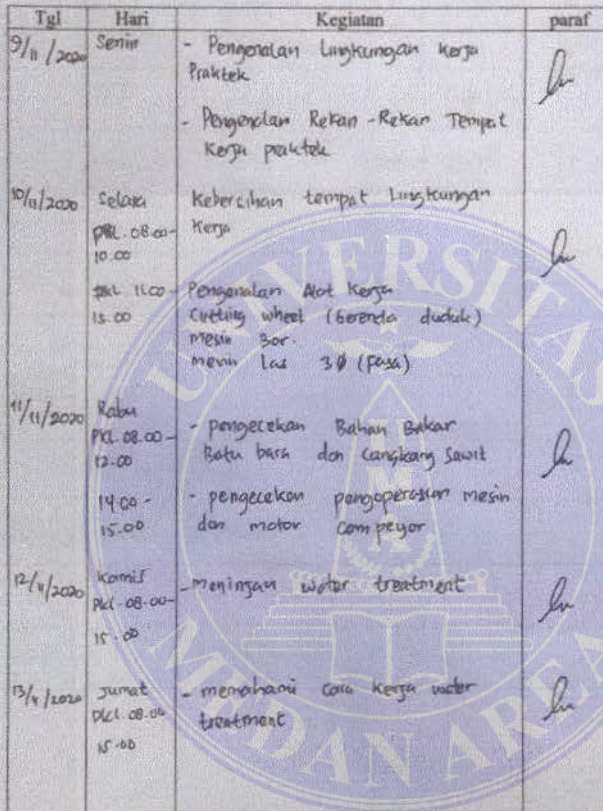 Tgl Hari Kegiatan paraf
9/11/2020 Senin - Pengenalan Lingkungan Kerja
Praktek
- Pengenalan Rekan-Rekan Tempat
Kerja praktek
10/11/2020 Selasa Kebersihan tempat Lingkungan
Pkl. 08.00- Kerja
10.00
Pkl 11.00- Pengenalan Alat Kerja
15.00 Cutting wheel (Gerenda duduk)
mesin Bor.
mesin Las 3Ø (Fasa)
11/11/2020 Rabu
Pkl. 08.00- - pengecekan Bahan Bakar
12.00 Batu bara dan Cangkang Sawit
14.00- - pengecekan pengoperasian mesin
15.00 dan motor Compeyor
12/11/2020 Kamis - meninjau water treatment
Pkl. 08.00-
15.00
13/11/2020 Jumat - memahami cara kerja water
Pkl. 08.00 treatment
15.00
UNIVERSITAS
MEDAN AREA